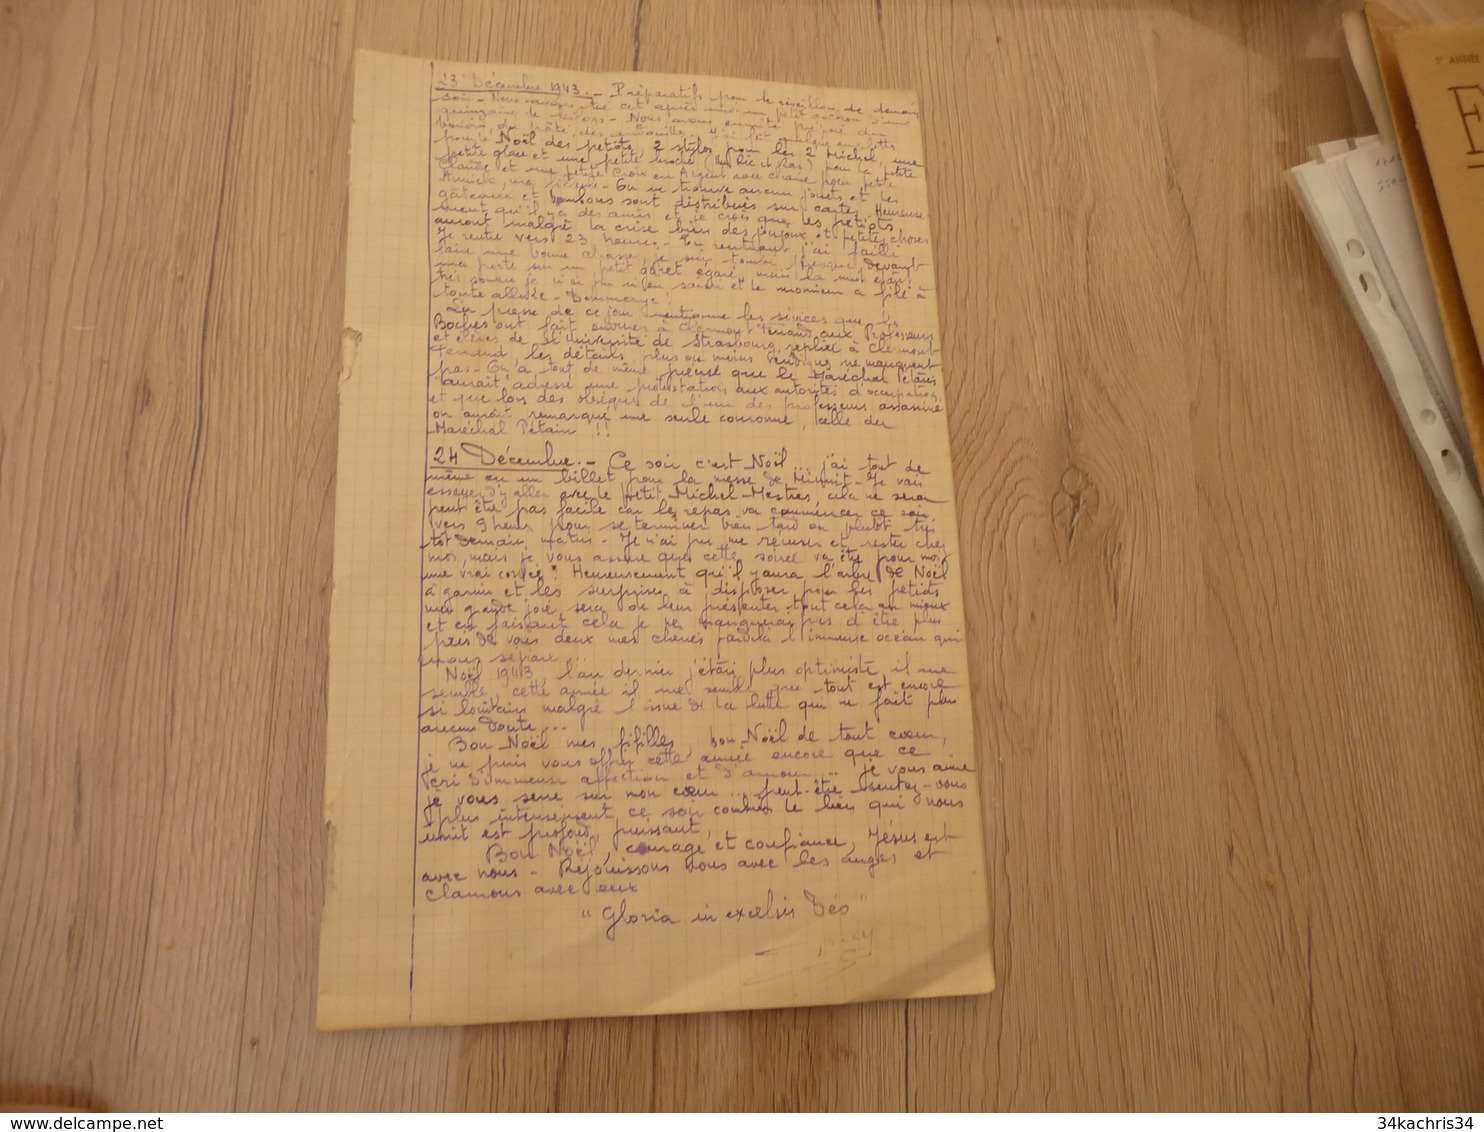 23 Décembre 1943. - Préparatifs pour le réveillon de demain
soir - Nous avons tué cet après-midi un petit cochon d'une
quinzaine de kilogs - Nous avons ensuite préparé du
boudin, du pâté, des andouilles - J'ai fait quelques emplettes
pour le Noël des petiots, 2 stylos pour les 2 Michel, une
petite glace et une petite broche (un Ric et Rac) pour la petite
Claude et une petite Croix en Argent avec chaîne pour petite
Annick, ma filleule - On ne trouve aucun jouets et les
gâteaux et bonbons sont distribués sur cartes. Heureuse-
ment qu'il y a des amis et je crois que les petiots
auront malgré la crise bien des joujoux et petites choses
Je rentre vers 23 heures - En rentrant j'ai failli
faire une bonne chasse, je suis tombé presque devant
ma porte sur un petit goret égaré, mais la nuit étant
très sombre je n'ai pu m'en saisir et le monsieur a filé à
toute allure - Dommage!
La presse de ce jour mentionne les sévices que les
Boches ont fait endurer à Clermont-Ferrand aux Professeurs
et élèves de l'Université de Strasbourg repliée à Clermont
Ferrand, les détails plus ou moins véridiques ne manquent
pas - On a tout de même précisé que le Maréchal Pétain
aurait adressé une protestation aux autorités d'occupation,
et que lors des obsèques de l'un des professeurs assassiné
on aurait remarqué une seule couronne, celle du
Maréchal Pétain !!
24 Décembre. - Ce soir c'est Noël... j'ai tout de
même eu un billet pour la messe de Minuit - Je vais
essayer d'y aller avec le petit Michel Mestres, cela ne sera
peut être pas facile car le repas va commencer ce soir
vers 9 heures pour se terminer bien tard ou plutôt très
tôt demain matin - Je n'ai pu me récuser et rester chez
moi, mais je vous assure que cette soirée va être pour moi
une vrai corvée! Heureusement qu'il y aura l'arbre de Noël
à garnir et les surprises à disposer pour les petiots
ma grande joie sera de leur présenter tout cela au mieux
et en faisant cela je ne manquerai pas d'être plus
près de vous deux mes chéries par delà l'immense océan qui
nous sépare...
Noël 1943, l'an dernier j'étais plus optimiste il me
semble, cette année il me semble que tout est encore
si lointain malgré l'issue de la lutte qui ne fait plus
aucun doute...
Bon Noël mes fifilles, bon Noël de tout cœur,
je ne puis vous offrir cette année encore que ce
cri d'immense affection et d'amour... je vous aime
je vous serre sur mon cœur... peut-être sentez-vous
plus intensément ce soir combien le lien qui nous
unit est profond, puissant,
Bon Noël, courage et confiance, Jésus est
avec nous - Réjouissons nous avec les anges et
clamons avec eux
"Gloria in excelsis Déo"
5° ANNÉE
34kachris34
delcampe.net